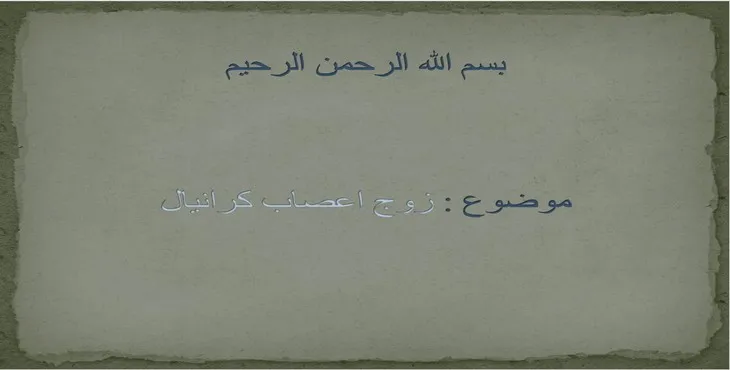 بسم الله الرحمن الرحيم
موضوع : زوج اعصاب كرانيال